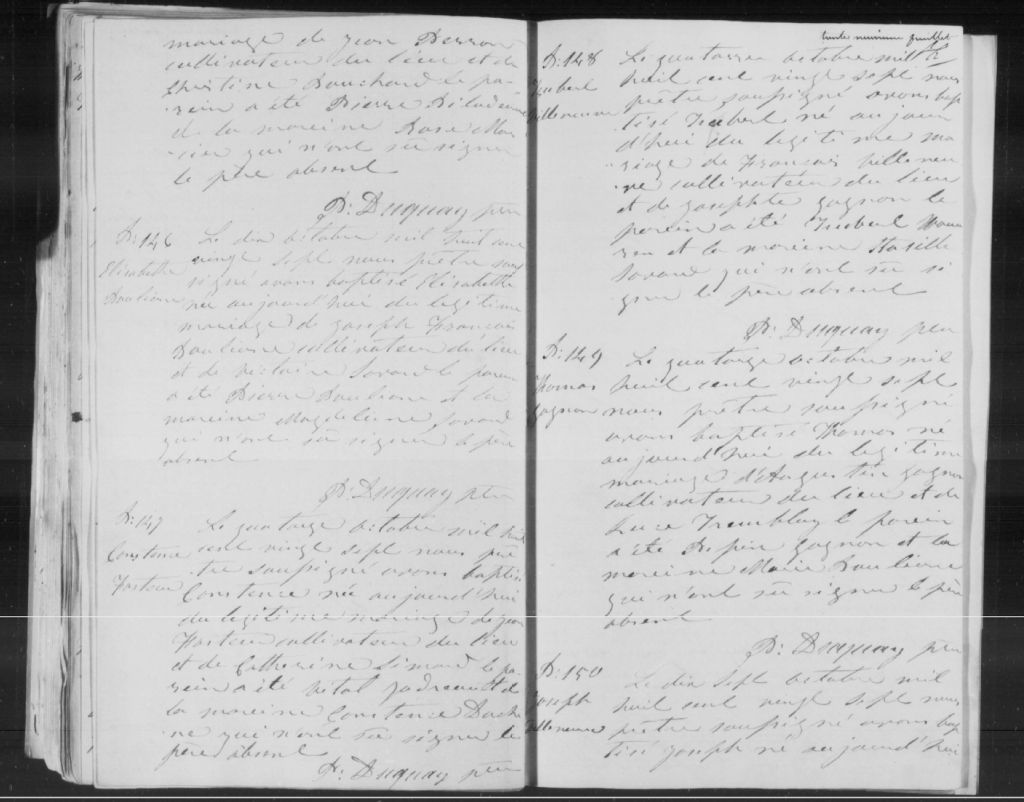 mariage de jean Perron
cultivateur du lieu et de
Christine Bouchard le pa-
rein a été Pierre
et la moreine Rose
qui n'ont su signer
le père absent
P: Duguay ptre
B: 146
Elisabette
Boulianne
Le dix octobre mil huit cent
vingt sept nous prêtre sous
signé avons baptisé Elisabette
née aujourd'hui du legitime
mariage de joseph François
Boulianne cultivateur du lieu
et de victoire Savard le parein
a été Pierre Boulianne et la
moreine Magdeleine Savard
qui n'ont su signer le père
absent
P: Duguay ptre
B: 147
Constence
Fortin
Le quatorze octobre mil huit
cent vingt sept nous prê
tre soussigné avons baptisé
Constence née aujourd'hui
du legitime mariage de jean
Fortin cultivateur du lieu
et de Catherine Simard le pa
rein a été vital gadreault et
la moreine Constence
ne qui n'ont su signer le
père absent
P: Duguay ptre
trente neuvieme feuillet
B: 148
hubert
villeneuve
Le quatorze octobre mil
huit cent vingt sept nous
prêtre soussigné avons bap
tisé hubert né aujour
d'hui du legitime ma
riage de François villeneu
ve cultivateur du lieu
et de josephte gagnon le
parein a été hubert
et la moreine
Savard qui n'ont su si
gner le père absent
P: Duguay ptre
B: 149
thomas
gagnon
Le quatorze octobre mil
huit cent vingt sept
nous prêtre soussigné
avons baptisé thomas né
aujourd'hui du legitime
mariage d'Augustin gagnon
cultivateur du lieu et de
Luce Tremblay le parein
a été gagnon et la
moreine Marie Boulianne
qui n'ont su signer le père
absent
P: Duguay ptre
B: 150
joseph
villeneuve
Le dix sept octobre mil
huit cent vingt sept nous
prêtre soussigné avons bap
tisé joseph né aujourd'hui